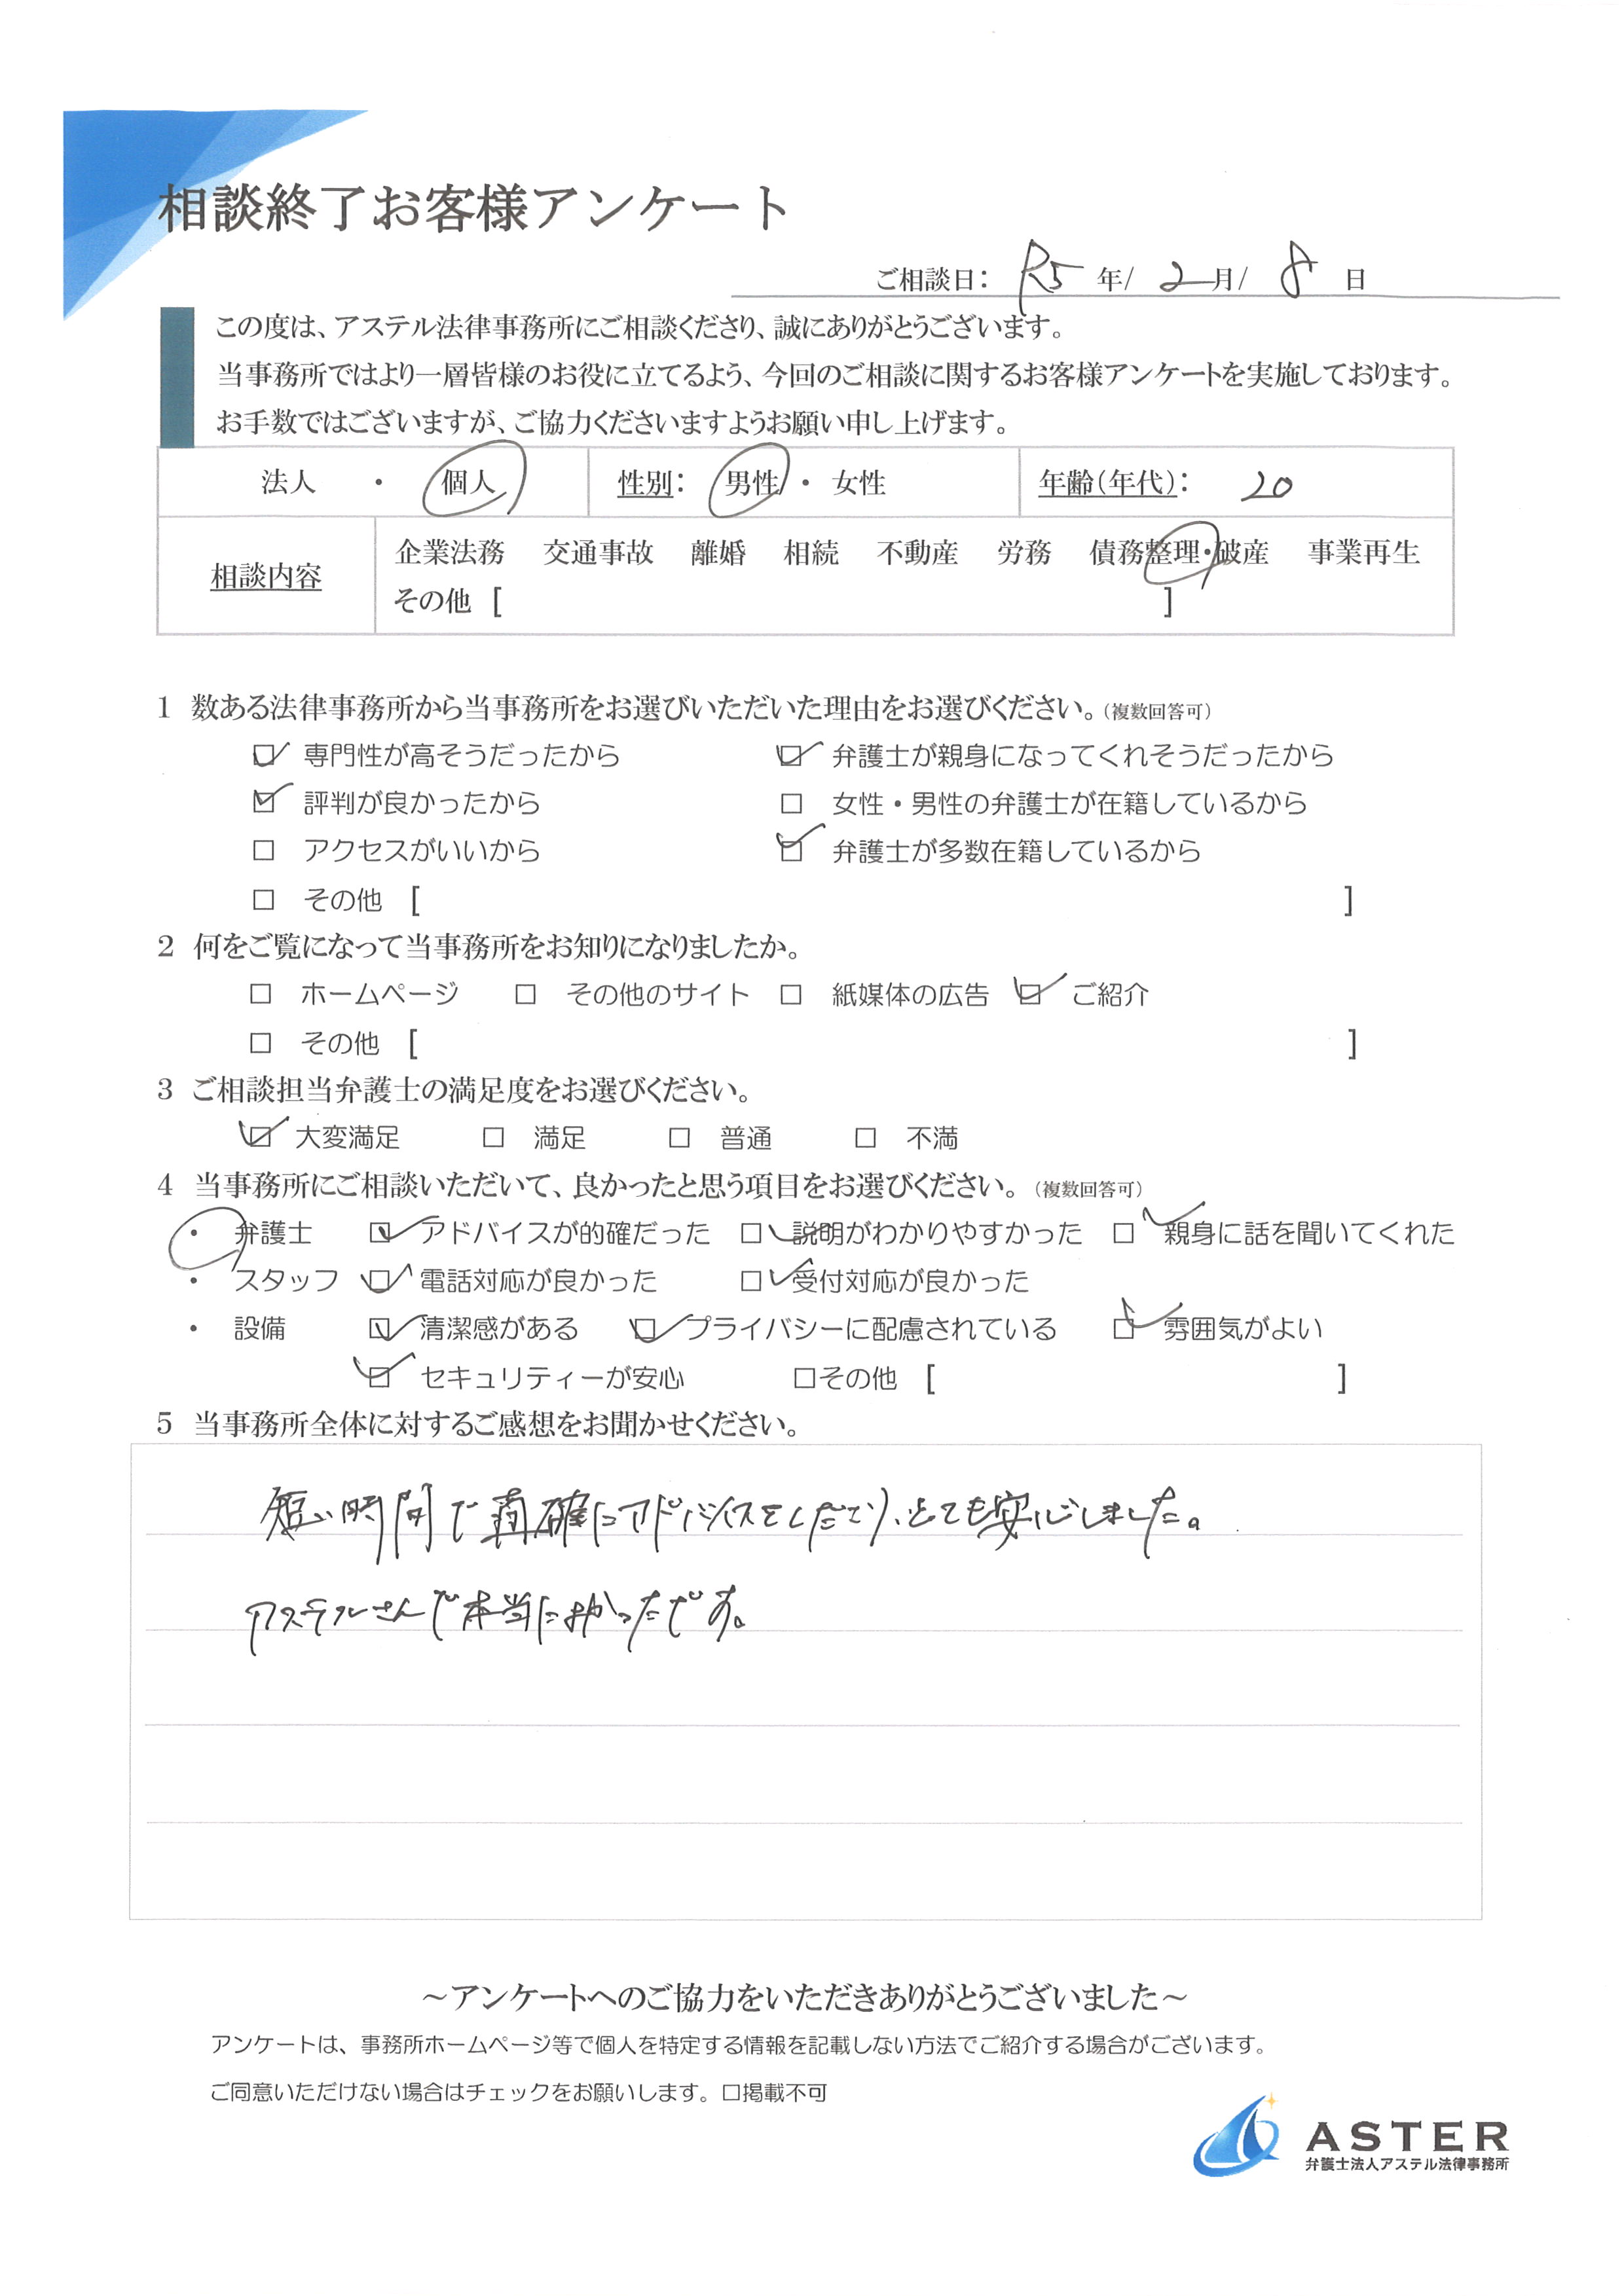 相談終了お客様アンケート
ご相談日: R5 年/ 2 月/ 8 日
この度は、アステル法律事務所にご相談くださり、誠にありがとうございます。
当事務所ではより一層皆様のお役に立てるよう、今回のご相談に関するお客様アンケートを実施しております。
お手数ではございますが、ご協力くださいますようお願い申し上げます。
法人 ・ 個人 性別: 男性 ・ 女性 年齢(年代): 20
相談内容 企業法務 交通事故 離婚 相続 不動産 労務 債務整理・破産 事業再生
その他 [ ]
1 数ある法律事務所から当事務所をお選びいただいた理由をお選びください。(複数回答可)
☑ 専門性が高そうだったから ☑ 弁護士が親身になってくれそうだったから
☑ 評判が良かったから □ 女性・男性の弁護士が在籍しているから
□ アクセスがいいから ☑ 弁護士が多数在籍しているから
□ その他 [ ]
2 何をご覧になって当事務所をお知りになりましたか。
□ ホームページ □ その他のサイト □ 紙媒体の広告 ☑ ご紹介
□ その他 [ ]
3 ご相談担当弁護士の満足度をお選びください。
☑ 大変満足 □ 満足 □ 普通 □ 不満
4 当事務所にご相談いただいて、良かったと思う項目をお選びください。(複数回答可)
・ 弁護士 ☑ アドバイスが的確だった ☑ 説明がわかりやすかった ☑ 親身に話を聞いてくれた
・ スタッフ ☑ 電話対応が良かった ☑ 受付対応が良かった
・ 設備 ☑ 清潔感がある ☑ プライバシーに配慮されている ☑ 雰囲気がよい
☑ セキュリティーが安心 □その他 [ ]
5 当事務所全体に対するご感想をお聞かせください。
短い時間で 確にアドバイスをしただき、とても安心しました。
アステルさんで本当によかったです。
～アンケートへのご協力をいただきありがとうございました～
アンケートは、事務所ホームページ等で個人を特定する情報を記載しない方法でご紹介する場合がございます。
ご同意いただけない場合はチェックをお願いします。□掲載不可
ASTER
弁護士法人アステル法律事務所